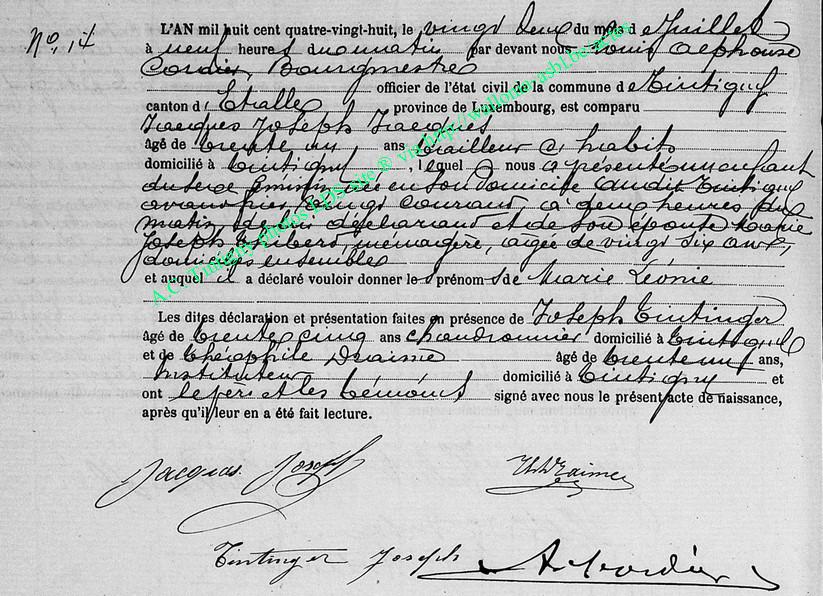 No. 14
L'AN mil huit cent quatre-vingt-huit, le vingt deux du mois d e Juillet
à neuf heures du matin par devant nous Louis Alphonse
Cordier, Bourgmestre
officier de l'état civil de la commune de Tintigny
canton d' Etalle province de Luxembourg, est comparu
Jacques Joseph Jacques
âgé de trente un ans tailleur d' habits
domicilié à Tintigny , lequel nous a présenté un enfant
du sexe féminin née en son domicile audit Tintigny
avant hier, vingt courant, à heures du
matin, de lui déclarant et de son épouse Marie
Joseph Gribert, ménagère, agée de vingt six ans,
domiciliés ensembles
et auquel il a déclaré vouloir donner le s prénom s de Marie Léonie
Les dites déclaration et présentation faites en présence de Joseph Tintinger
âgé de trente cinq ans chaudronnier domicilié à Tintigny
et de Théophile Draime âgé de trente neuf ans,
instituteur domicilié à Tintigny et
ont le père et les témoins signé avec nous le présent acte de naissance,
après qu'il leur en a été fait lecture.
Jacques Joseph Th Draime
Tintinger Joseph A. Cordier
A.C. Tintigny photos LDS site ® via http://wallonia-asbl.be actes